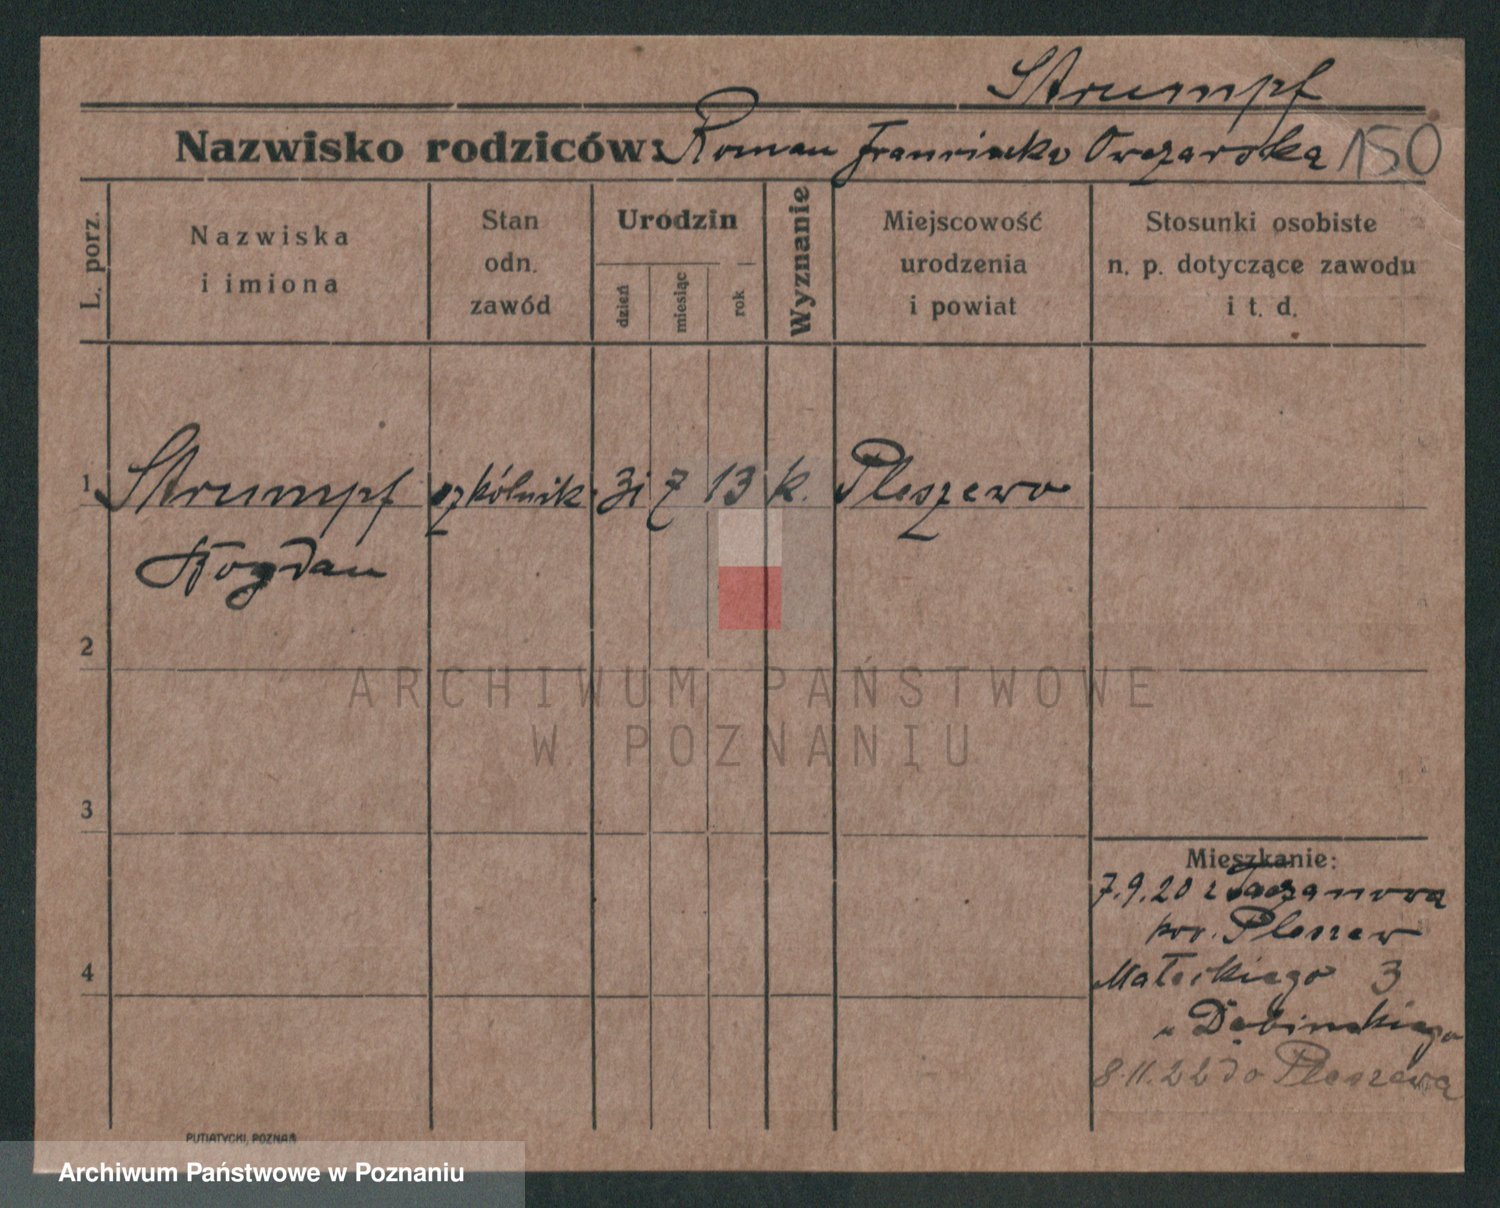 Strumpf
Nazwisko rodziców: Roman Franciszka Owczarska 150
L. porz.
Nazwiska
i imiona
Stan
odn.
zawód
Urodzin
dzień
miesiąc
rok
Wyznanie
Miejscowość
urodzenia
i powiat
Stosunki osobiste
n. p. dotyczące zawodu
i t. d.
1 Strumpf szkólnik 31 7 13 k. Pleszewo
Bogdan
2
3
4
Mieszkanie:
7.9.20 z Taczanowa
pow. Pleszew
Małeckiego 3
u Dabinskiego
8.11.22 do Pleszewa
PUTIATYCKI, POZNAŃ
ARCHIWUM PAŃSTWOWE
W POZNANIU
Archiwum Państwowe w Poznaniu